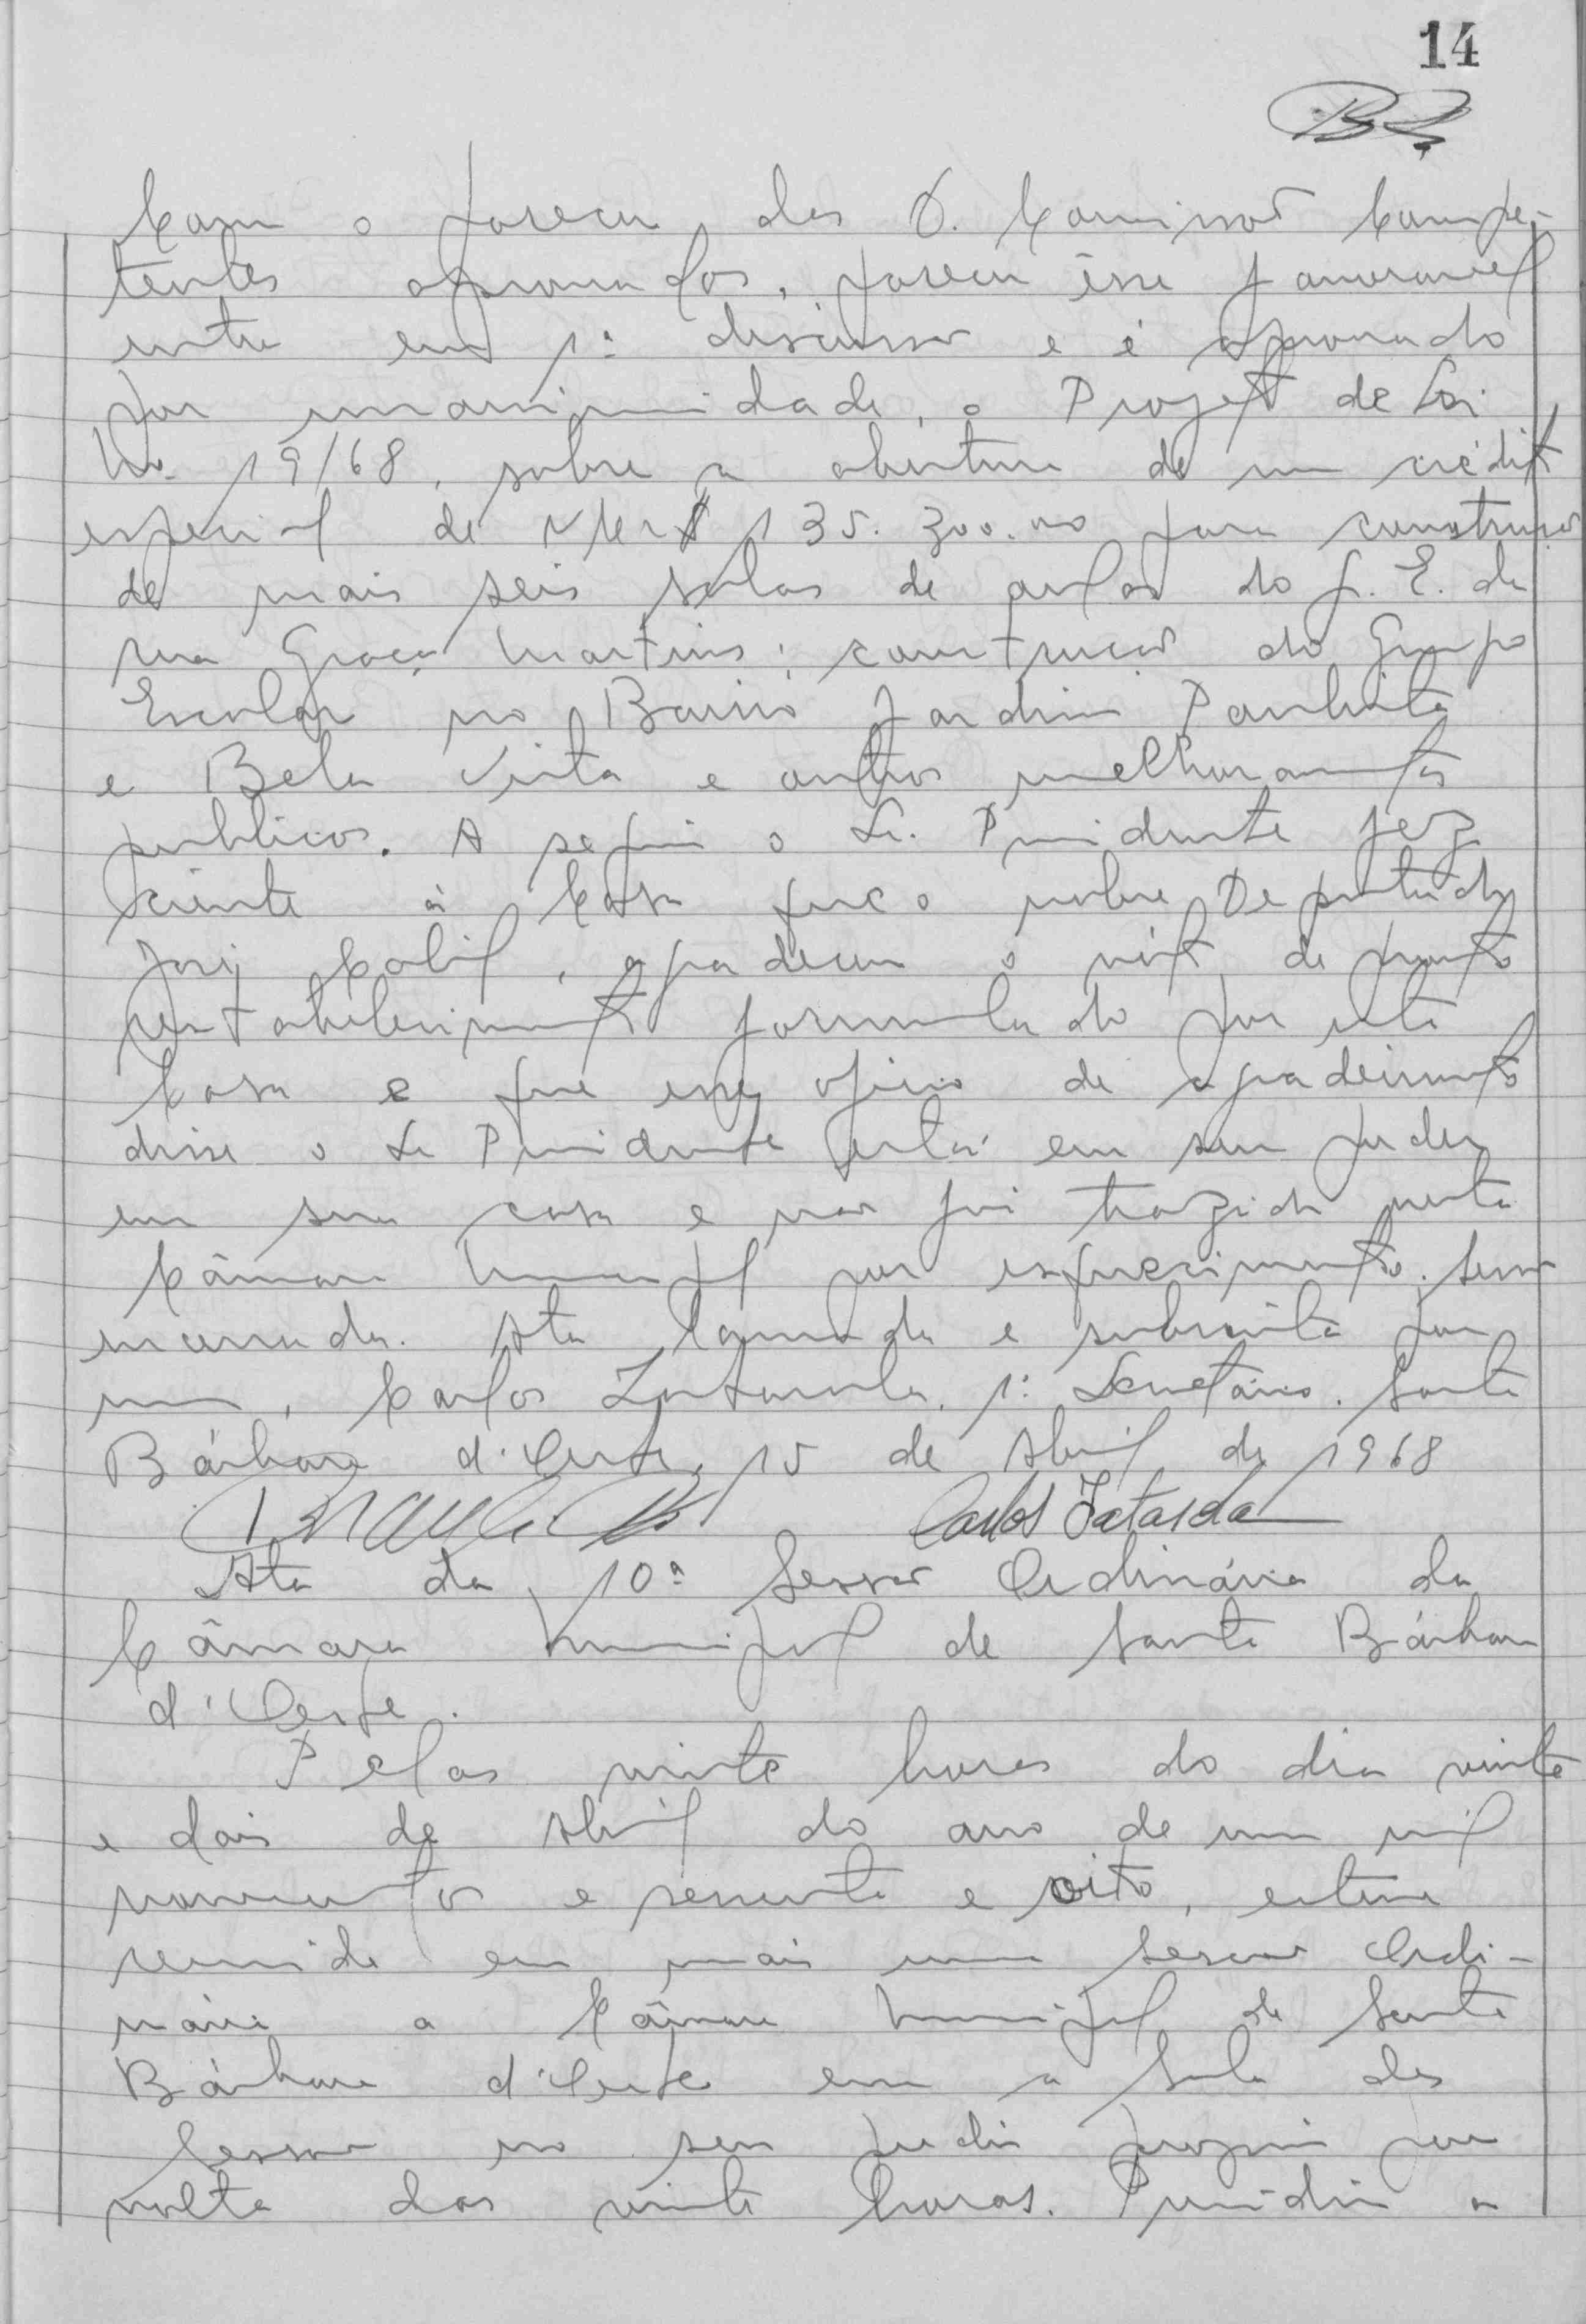 14
Com o parecer das D. Comissão Compe-
tentes aprovados, parecer êsse favoravel
entra em 1ª discussão e é aprovado
por unanimidade, o Projeto de Lei
No. 19/68, sobre a abertura de um crédito
especial de NCr$ 135.300.00 para construção
de mais seis salas de aulas do G. E. da
rua Graça Martins; construção do Grupo
Escolar no Bairro Jardim Paulista
e Bela Vista e outros melhoramentos
publicos. A seguir o Sr. Presidente fez
ciente à Casa que o nobre Deputado
José Calil, agradeceu o voto de pronto
restabelecimento formulado por esta
Casa e que esse oficio de agradecimento
disse o Sr Presidente está em seu poder
em sua casa e não foi trazido nesta
Câmara Municipal por esquecimento. Sessão
encerrada. Ata lavrada e subscrita por
mim, Carlos 1º Secretário. Santa
Bárbara d'Oeste, 15 de Abril de 1968
Carlos
Ata da 10ª Sessão Ordinária da
Câmara Municipal de Santa Bárbara
d'Oeste.
Pelas vinte horas do dia vinte
e dois de Abril do ano de um mil
novecentos e sessenta e oito, esteve
reunida em mais uma sessão Ordi-
nária a Câmara Municipal de Santa
Bárbara d'Oeste em a Sala das
Sessão no seu predio proprio por
volta das vinte horas. Presidiu a